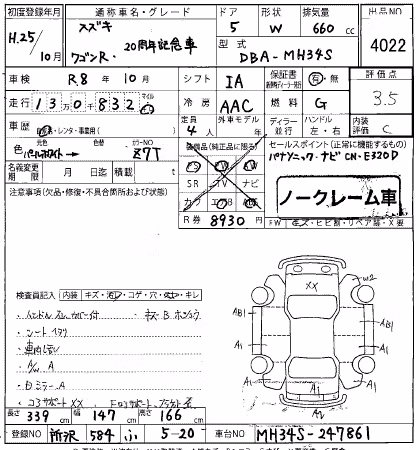 初度登録年月 通称車名・グレード ドア 形状 排気量 出品NO
H.25/10月 スズキ ワゴンR. 20周年記念車 5 W 660 cc 4022
型式 DBA-MH34S
車検 R.8年10月 シフト IA 保証書 有・無 評価点 3.5
走行 130832 マイル 冷房 AAC 燃料 G
車歴 自家・レンタ・事業用( ) 定員 4人 外車モデル ディーラー 並行 ハンドル 左・右 内装評価 C
色 元色 パールホワイト 色替 カラーNO Z7T
装備品(純正品に限る) セールスポイント(正常に機能するもの)
パナソニック・ナビ CN-E320D
名義変更期限 月 日迄 積載 t SR TV ナビ
ノークレーム車
注意事項(欠品・修復・不具合箇所および状態) カワ エアB AW
R券 8930円 FW キズ・ヒビ割・リペア跡・X要
検査員記入 内装 キズ・汚・コゲ・穴・・キレ
・シート
・車内
・A/W A
・Dミラー A
・コアサポート XX
XX W2
AB1 AB1
A1 A1
A1 A1
A1
A2
長さ 339 cm 幅 147 cm 高さ 166 cm
登録NO 所沢 584 ふ 5-20 車台NO MH34S-247861